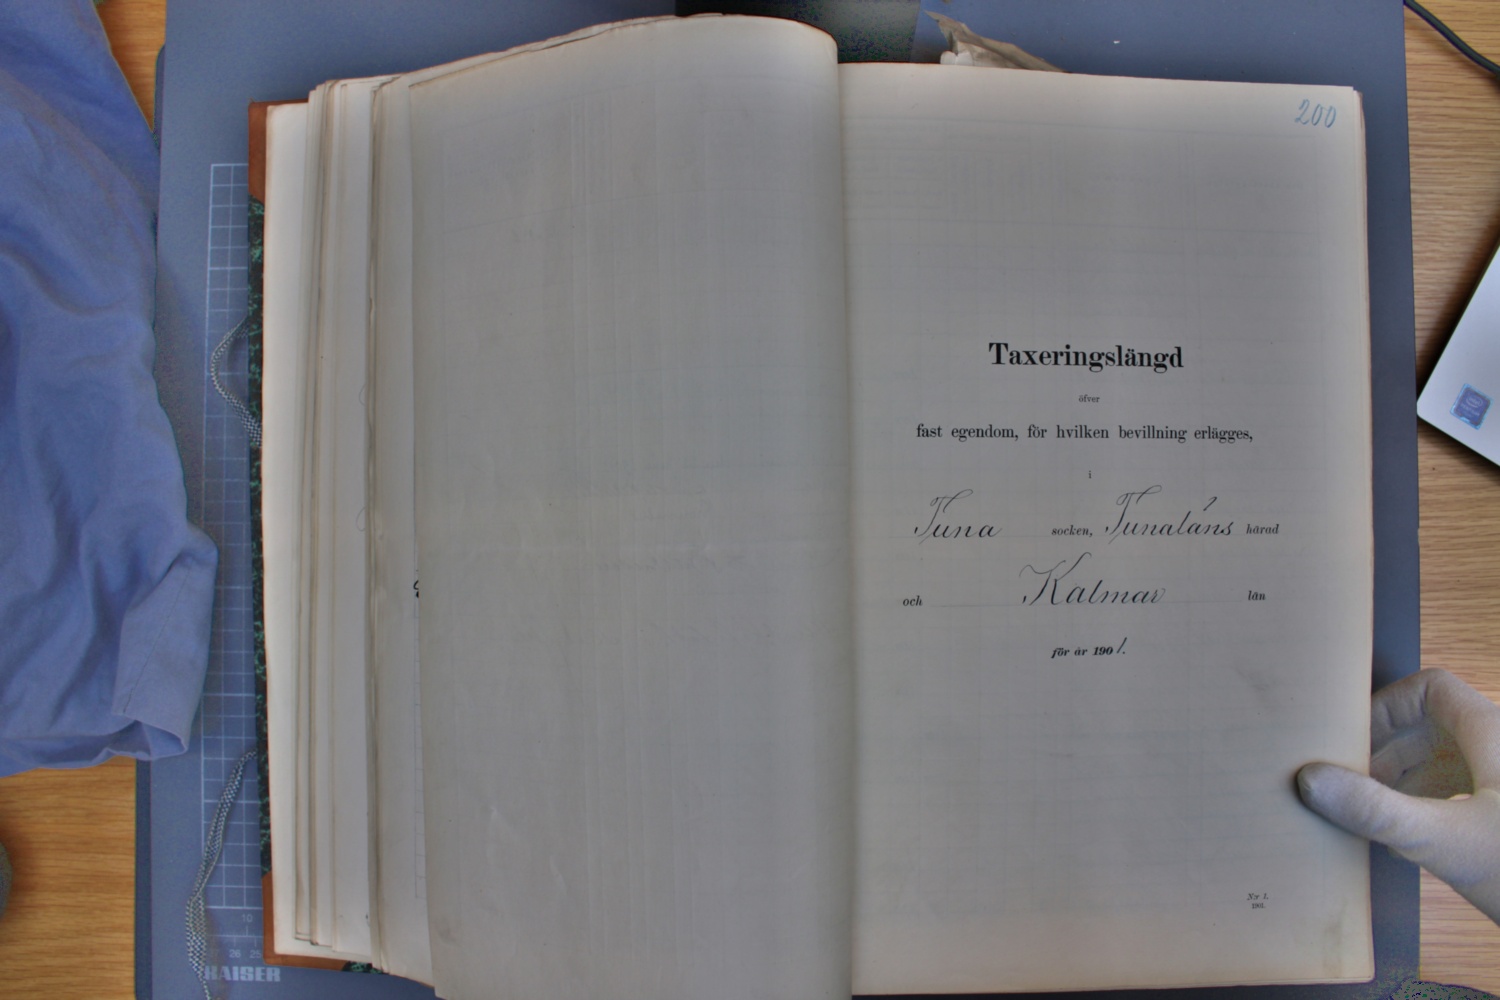 200
Taxeringslängd
öfver
fast egendom, för hvilken bevillning erlägges,
i
Tuna socken, Tunaläns härad
och Kalmar län
för år 1901.
N:r 1.
1901.
10
26 25
KAISER